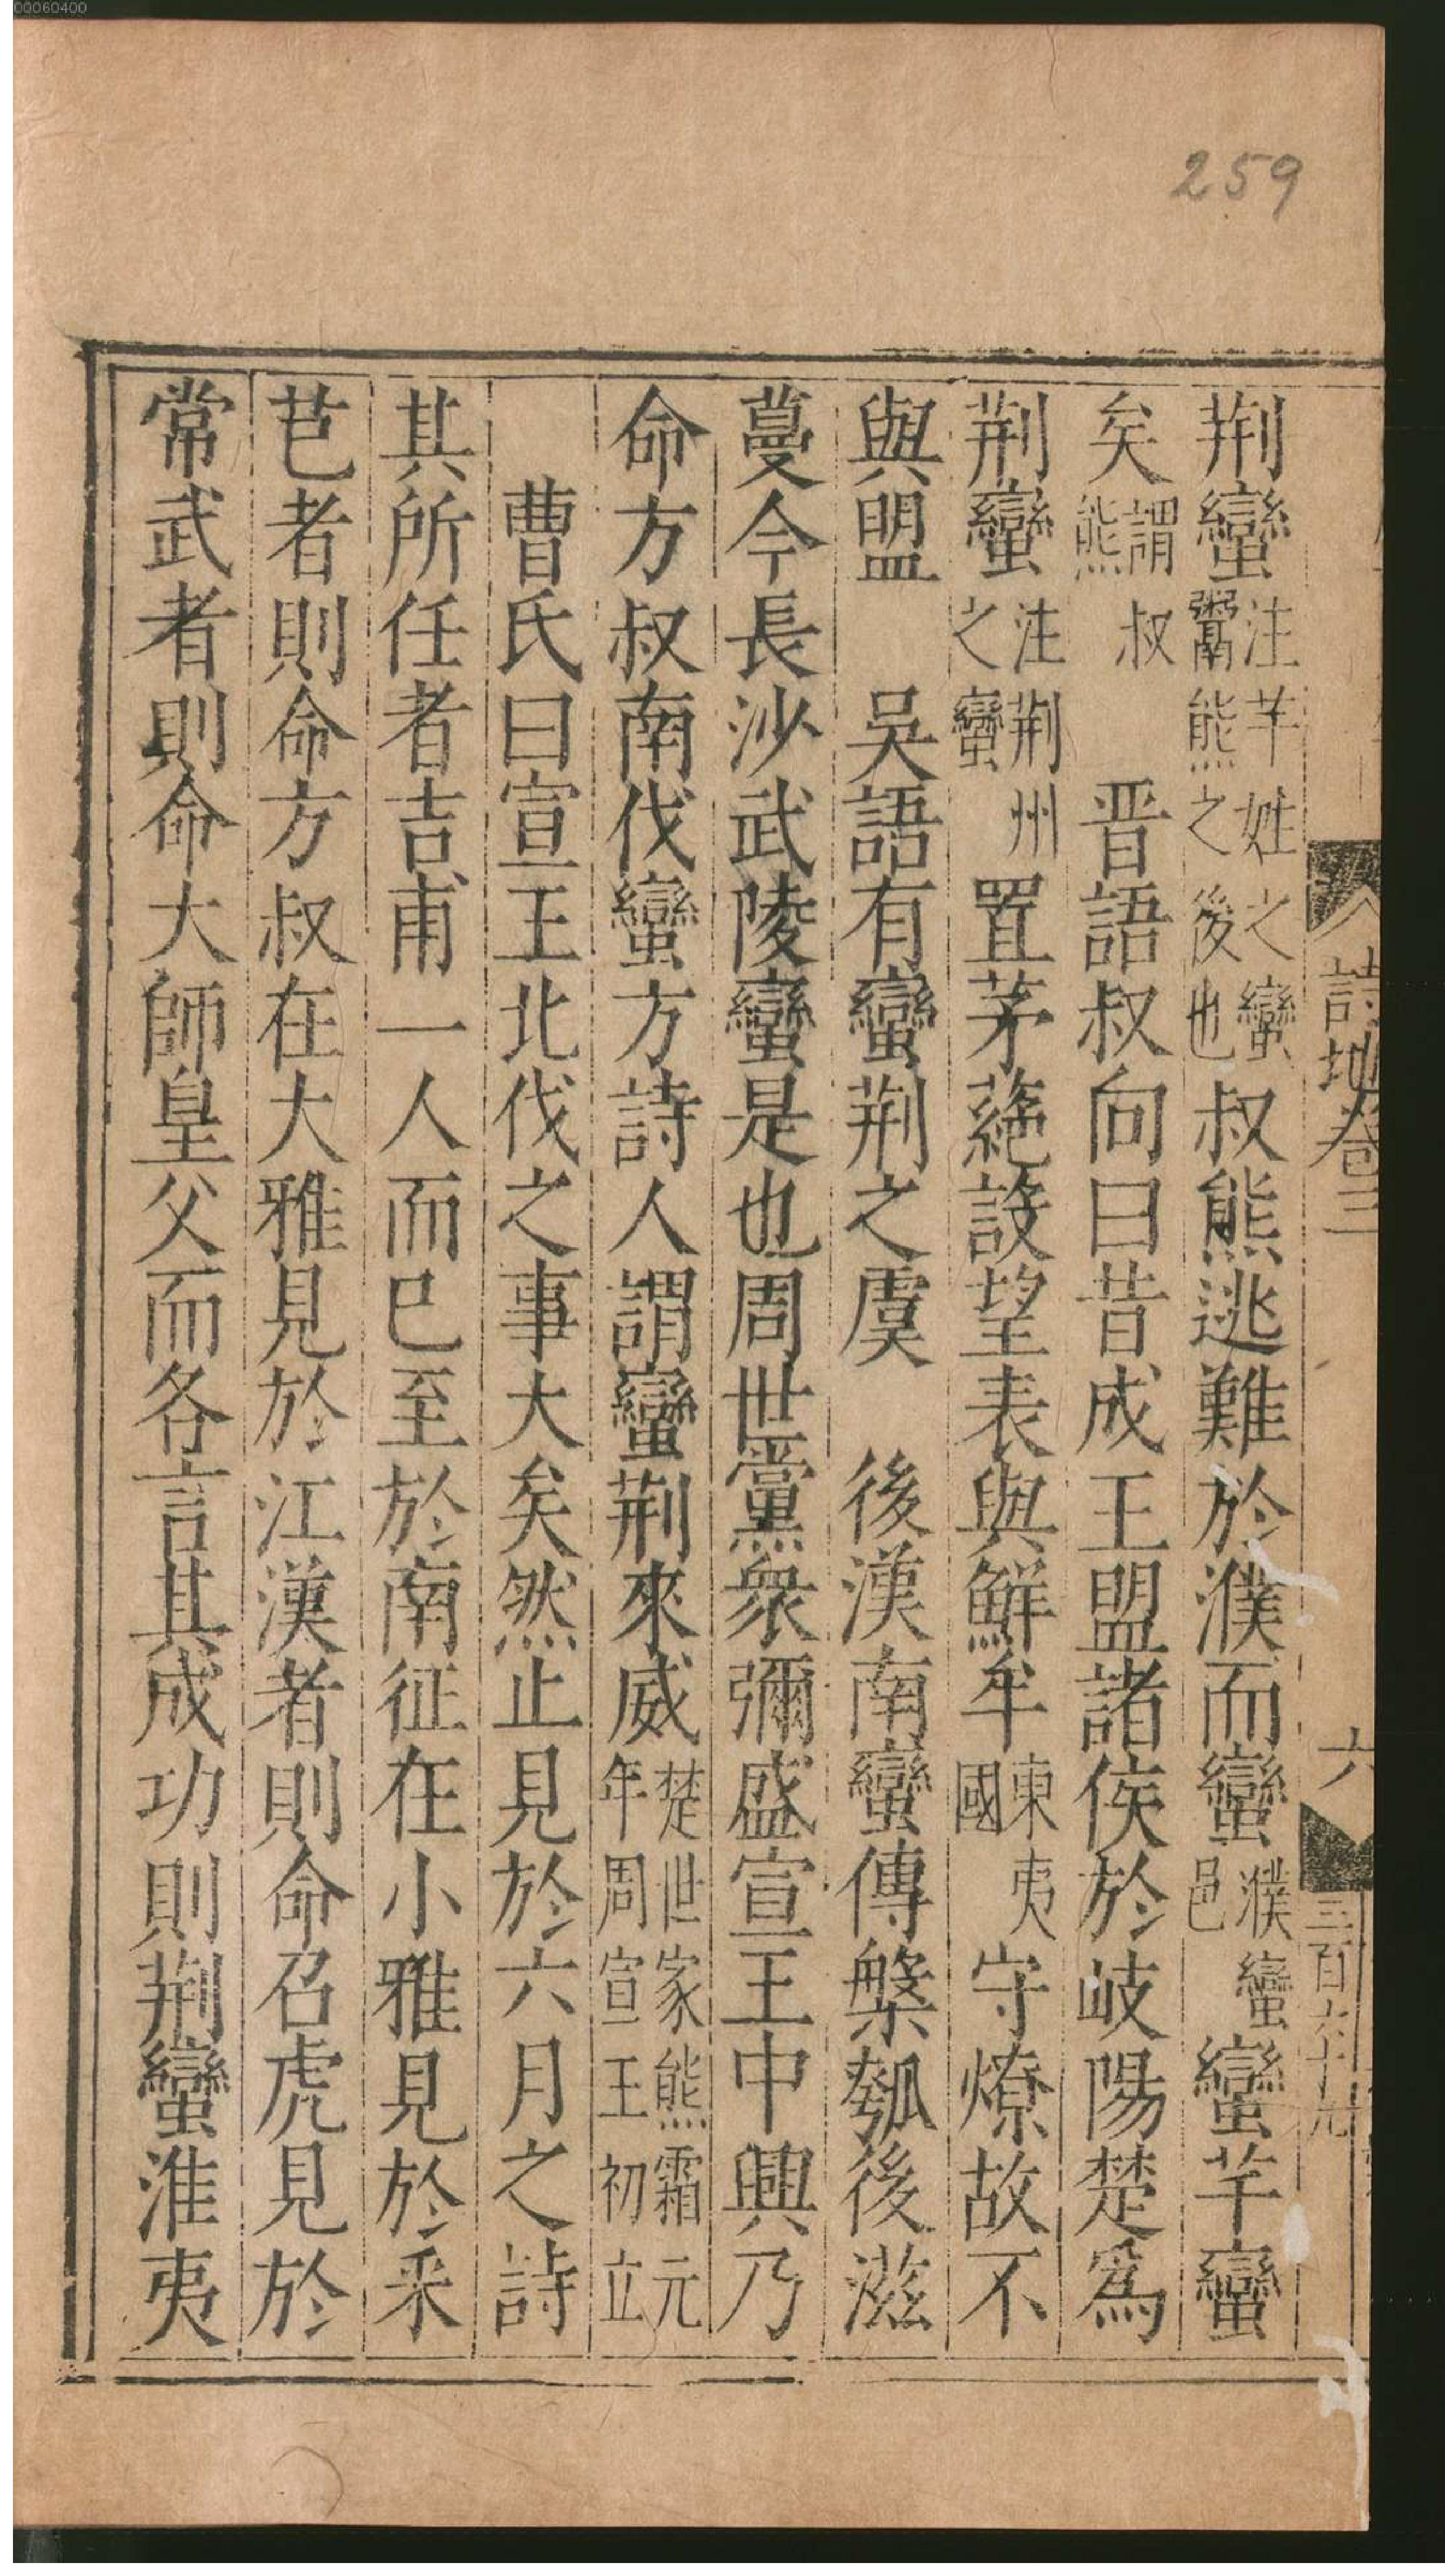 00060400
259
詩地卷三
六
荆蠻注芊姓之蠻鬻熊之後也叔熊逃難於濮而蠻濮蠻邑蠻芊蠻
矣謂叔熊 晋語叔向曰昔成王盟諸侯於岐陽楚爲
荆蠻注荆州之蠻置茅蕝設望表與鮮牟東夷國守燎故不
與盟 吳語有蠻荆之虞 後漢南蠻傳槃瓠後滋
蔓今長沙武陵蠻是也周世黨衆彌盛宣王中興乃
命方叔南伐蠻方詩人謂蠻荆來威楚世家熊霜元年周宣王初立
曹氏曰宣王北伐之事大矣然止見於六月之詩
其所任者吉甫一人而已至於南征在小雅見於采
芑者則命方叔在大雅見於江漢者則命召虎見於
常武者則命大師皇父而各言其成功則荆蠻淮夷